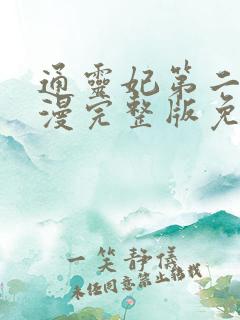 通靈妃第二
漫完整版免
一笑靜儀
未经同意禁止转载